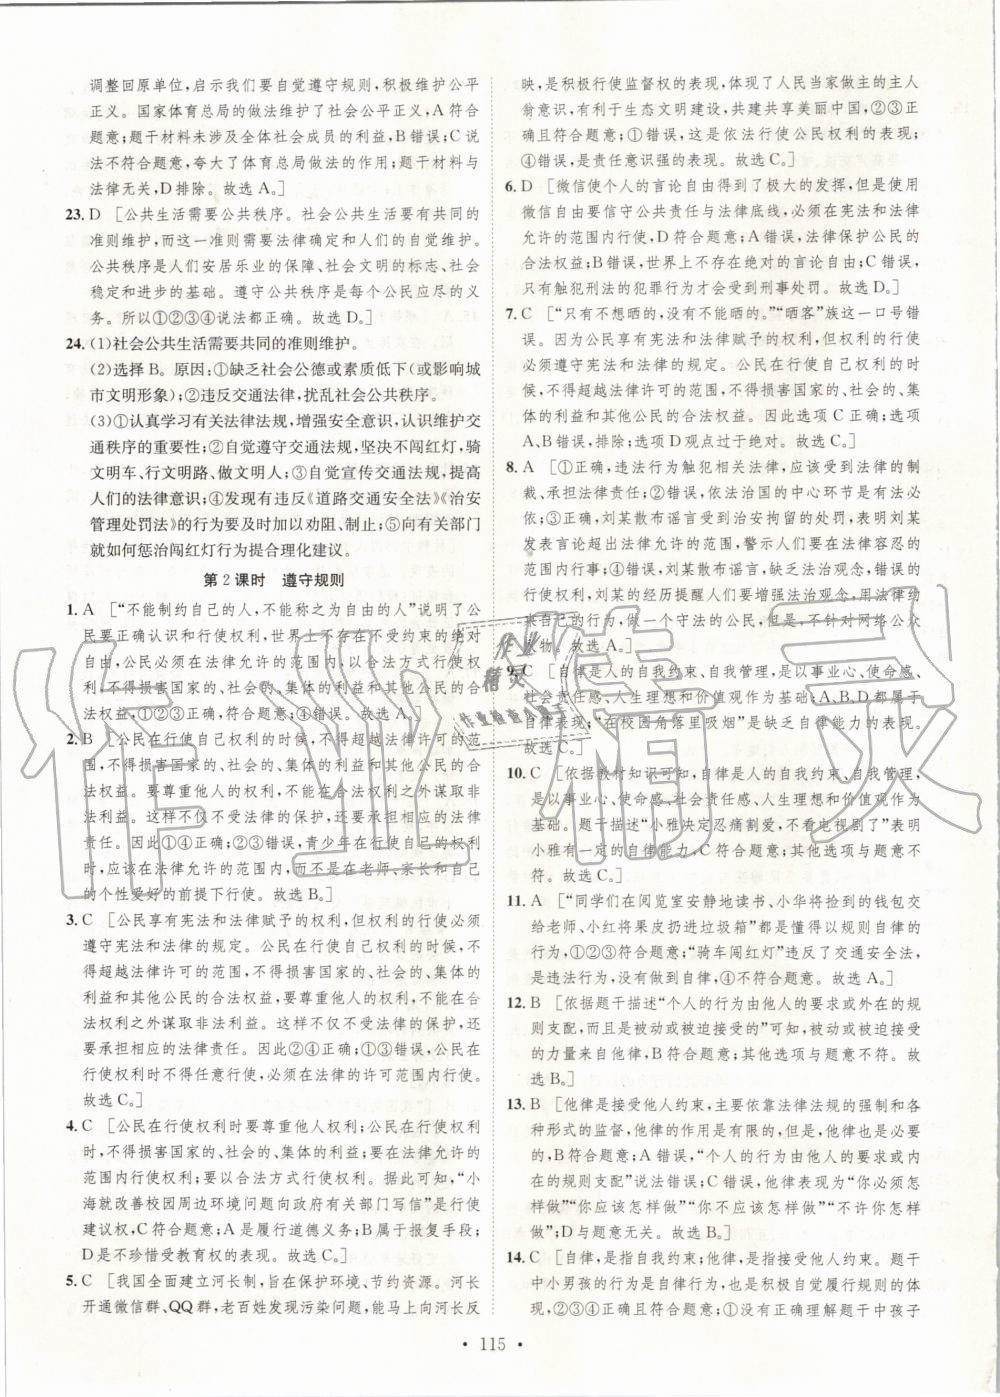 调整回原单位,启示我们要自觉遵守规则,积极维护公平
正义。国家体育总局的做法维护了社会公平正义,A符合
题意;题干材料未涉及全体社会成员的利益,B错误;C说
法不符合题意,夸大了体育总局做法的作用;题干材料与
法律无关,D排除。故选A。]
23. D [公共生活需要公共秩序。社会公共生活要有共同的
准则维护,而这一准则需要法律确定和人们的自觉维护。
公共秩序是人们安居乐业的保障、社会文明的标志、社会
稳定和进步的基础。遵守公共秩序是每个公民应尽的义
务。所以①②③④说法都正确。故选D。]
24. (1)社会公共生活需要共同的准则维护。
(2)选择B。原因:①缺乏社会公德或素质低下(或影响城
市文明形象);②违反交通法律,扰乱社会公共秩序。
(3)①认真学习有关法律法规,增强安全意识,认识维护交
通秩序的重要性;②自觉遵守交通法规,坚决不闯红灯,骑
文明车、行文明路、做文明人;③自觉宣传交通法规,提高
人们的法律意识;④发现有违反《道路交通安全法》《治安
管理处罚法》的行为要及时加以劝阻、制止;⑤向有关部门
就如何惩治闯红灯行为提合理化建议。
第2课时 遵守规则
1. A [“不能制约自己的人,不能称之为自由的人”说明了公
民要正确认识和行使权利,世界上不存在不受约束的绝对
自由,公民必须在法律允许的范围内,以合法方式行使权
利,不得损害国家的、社会的、集体的利益和其他公民的合
法权益。①②③正确且符合题意;④错误。故选A。]
2. B [公民在行使自己权利的时候,不得超越法律许可的范
围,不得损害国家的、社会的、集体的利益和其他公民的合
法权益。要尊重他人权利,不能在权利之外谋取非
法利益。这样不仅不受法律的保护,还要承担相应的法律
责任。因此,B正确;A、C、D错误,青少年在行使自己的权利
时,应该在法律允许的范围内,而不是在老师、家长和自己
的个性爱好的前提下行使。故选B。]
3. C [公民享有宪法和法律赋予的权利,但权利的行使必须
遵守宪法和法律的规定。公民在行使自己权利的时候,不
得超越法律许可的范围,不得损害国家的、社会的、集体的
利益和其他公民的合法权益,要尊重他人的权利,不能在
权利之外谋取非法利益。这样不仅不受法律的保护,还要
承担相应的法律责任。因此②④正确;①③错误,公民在
行使权利时不得任意行使,必须在法律的许可范围内行使。
故选C。]
4. C [公民在行使权利时要尊重他人权利,不得损害国家
的、社会的、集体的利益;要在法律允许的
范围内行使权利;要以合法方式行使权利。根据题意,小
海就改善校园周边环境问题向政府有关部门写信是行使
建议权,C符合题意;A是履行道德义务;B属于报复手段;
D是不珍惜受教育权的表现。故选C。]
5. C [我国全面建立河长制,旨在保护环境、节约资源。河长
开通微信群、QQ群,老百姓发现污染问题,能马上向河长反
映,是积极行使监督权的表现,体现了人民当家做主的主人
翁意识,有利于生态文明建设,共建共享美丽中国,②③正
确且符合题意;①错误,这是依法行使公民权利的表现;
④错误,是责任意识强的表现。故选C。]
6. D [微信使个人的言论自由得到了极大的发挥,但是使用
微信自由要信守公共责任与法律底线,必须在宪法和法律
允许的范围内行使,D符合题意;A错误,法律保护公民的
合法权益;B错误,世界上不存在绝对的言论自由;C错误,
只有触犯刑法的犯罪行为才会受到刑事处罚。故选D。]
7. C [“只有不想晒的,没有不能晒的。”“晒客”族这一口号错
误。因为公民享有宪法和法律赋予的权利,但权利的行使
必须遵守宪法和法律的规定。公民在行使自己权利的时
候,不得超越法律许可的范围,不得损害国家的、社会的、集
体的利益和其他公民的合法权益。因此选项C正确;选项
A、B错误,排除;选项D观点过于绝对。故选C。]
8. A [①正确,违法行为触犯相关法律,应该受到法律的制
裁、承担法律责任;②错误,依法治国的中心环节是有法必
依;③正确,刘某散布谣言受到治安拘留的处罚,表明刘某
发表言论超出法律允许的范围,警示人们要在法律容忍的
范围内行事;④错误,刘某散布谣言,缺乏法治观念,无底线
行使权利,刘某的经历提醒人们要增强法治观念,用法律约
束自己的行为,做一个守法的公民,但是,不针对网络公众
人物。故选A。]
9. C [自律是人的自我约束、自我管理,是以事业心、使命感、
社会责任感、人生理想和价值观作为基础;A、B、D都属于
自律表现;“在校园角落里吸烟”是缺乏自律能力的表现。
故选C。]
10. C [依据教材知识可知,自律是人的自我约束、自我管理,
是以事业心、使命感、社会责任感、人生理想和价值观作为
基础。题干描述“小雅决定忍痛割爱,不看电视剧了”表明
小雅有一定的自律能力,C符合题意;其他选项与题意不
符。故选C。]
11. A [“同学们在阅览室安静地读书、小华将捡到的钱包交
给老师、小红将果皮扔进垃圾箱”都是懂得以规则自律的
行为,①②③符合题意;“骑车闯红灯”违反了交通安全法,
是违法行为,没有做到自律,④不符合题意。故选A。]
12. B [依据题干描述“个人的行为由他人的要求或外在的规
则支配,而且是被动或被迫接受的”可知,被动或被迫接受
的行为是他律,B符合题意;其他选项与题意不符。故
选B。]
13. B [他律是接受他人约束,主要依靠法律法规的强制和各
种形式的监督,他律的作用是有限的,但是,他律又是必要
的,因此B符合题意;A错误,“个人的行为由他人的要求或内
在的规则支配”说法错误;C错误,他律表现为“你必须怎
样做”“你应该怎样做”“你不应该怎样做”“不许你怎样
做”;D与题意无关。故选B。]
14. C [自律,是指自我约束;他律,是指接受他人约束。题干
中小男孩的行为是自律行为,也是积极自觉履行规则的体
现,②③④正确且符合题意;①没有正确理解题干中孩子
• 115 •